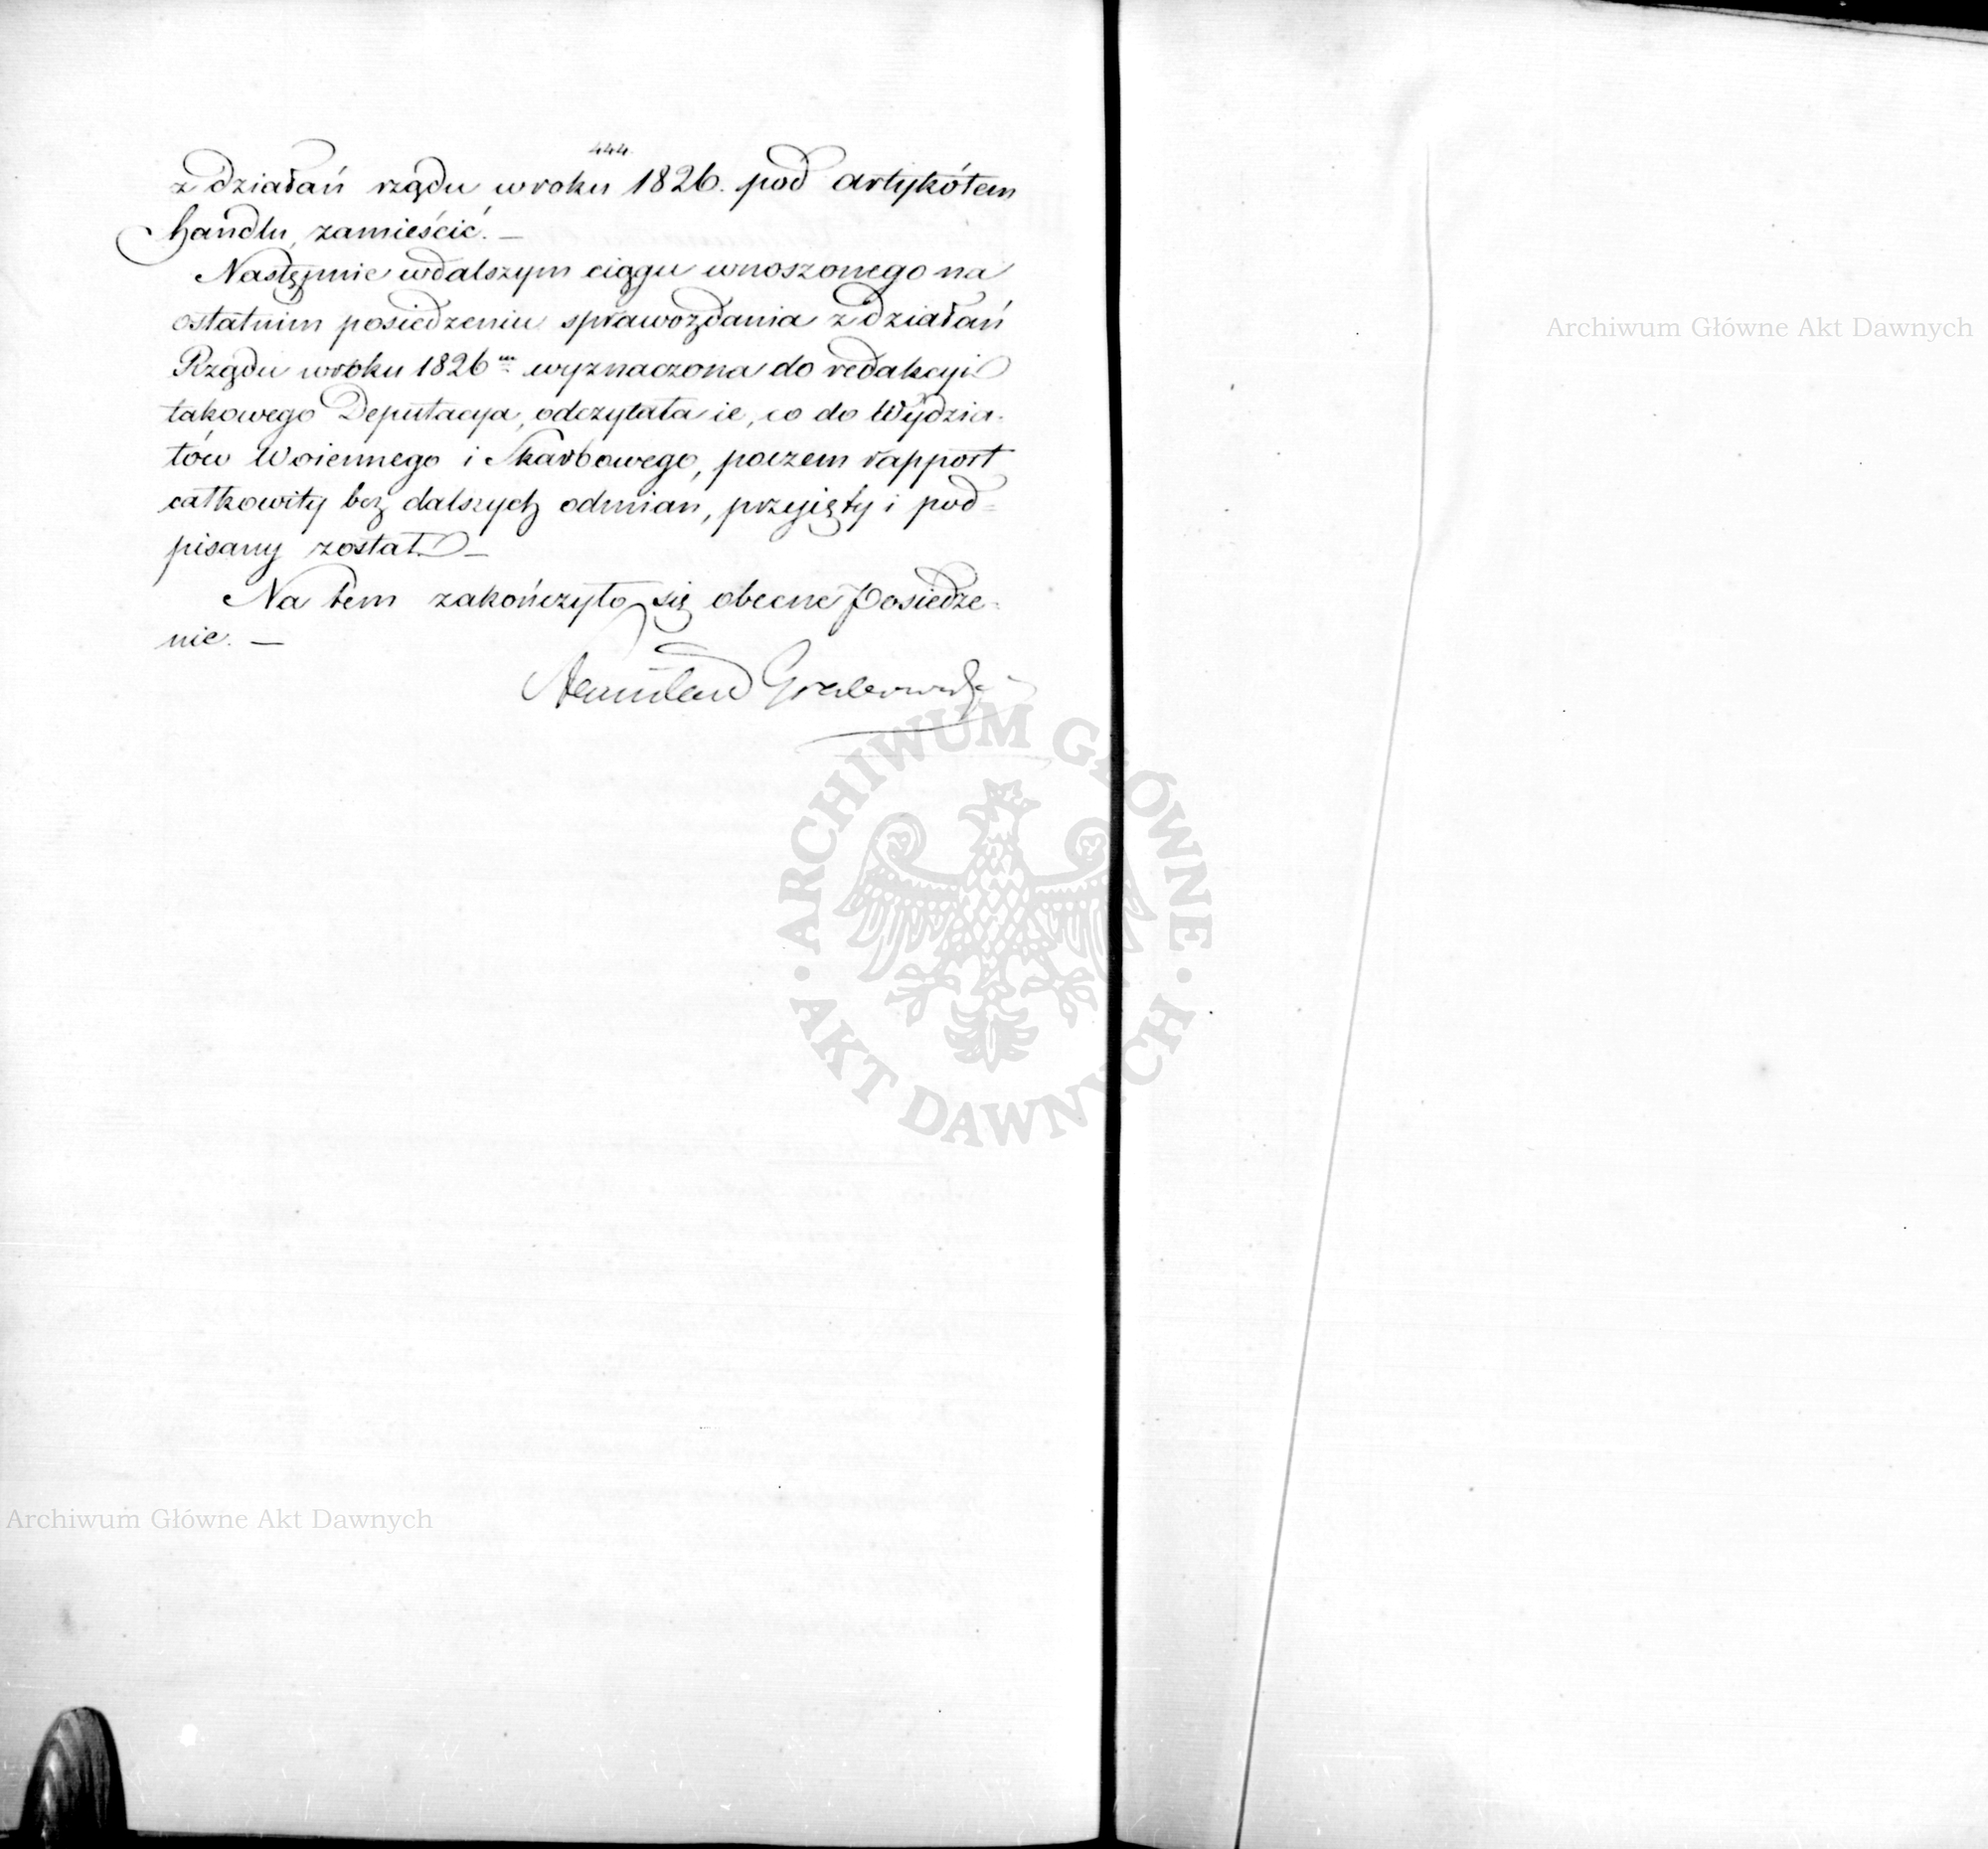 444.
z działań rządu w roku 1826. pod artykółem
handlu, zamieścić. —
Następnie w dalszym ciągu wnoszonego na
ostatnim posiedzeniu sprawozdania z działań
Rządu w roku 1826m wyznaczona do redakcyi
takowego Deputacya, odczytała ie, co do Wydzia-
łów Woiennego i Skarbowego, poczem rapport
całkowity bez dalszych odmian, przyięty i pod=
pisany został. —
Na tem zakończyło się obecne Posiedze=
nie. —
Stanisław Grabowski
ARCHIWUM GŁÓWNE · AKT DAWNYCH ·
Archiwum Główne Akt Dawnych
Archiwum Główne Akt Dawnych